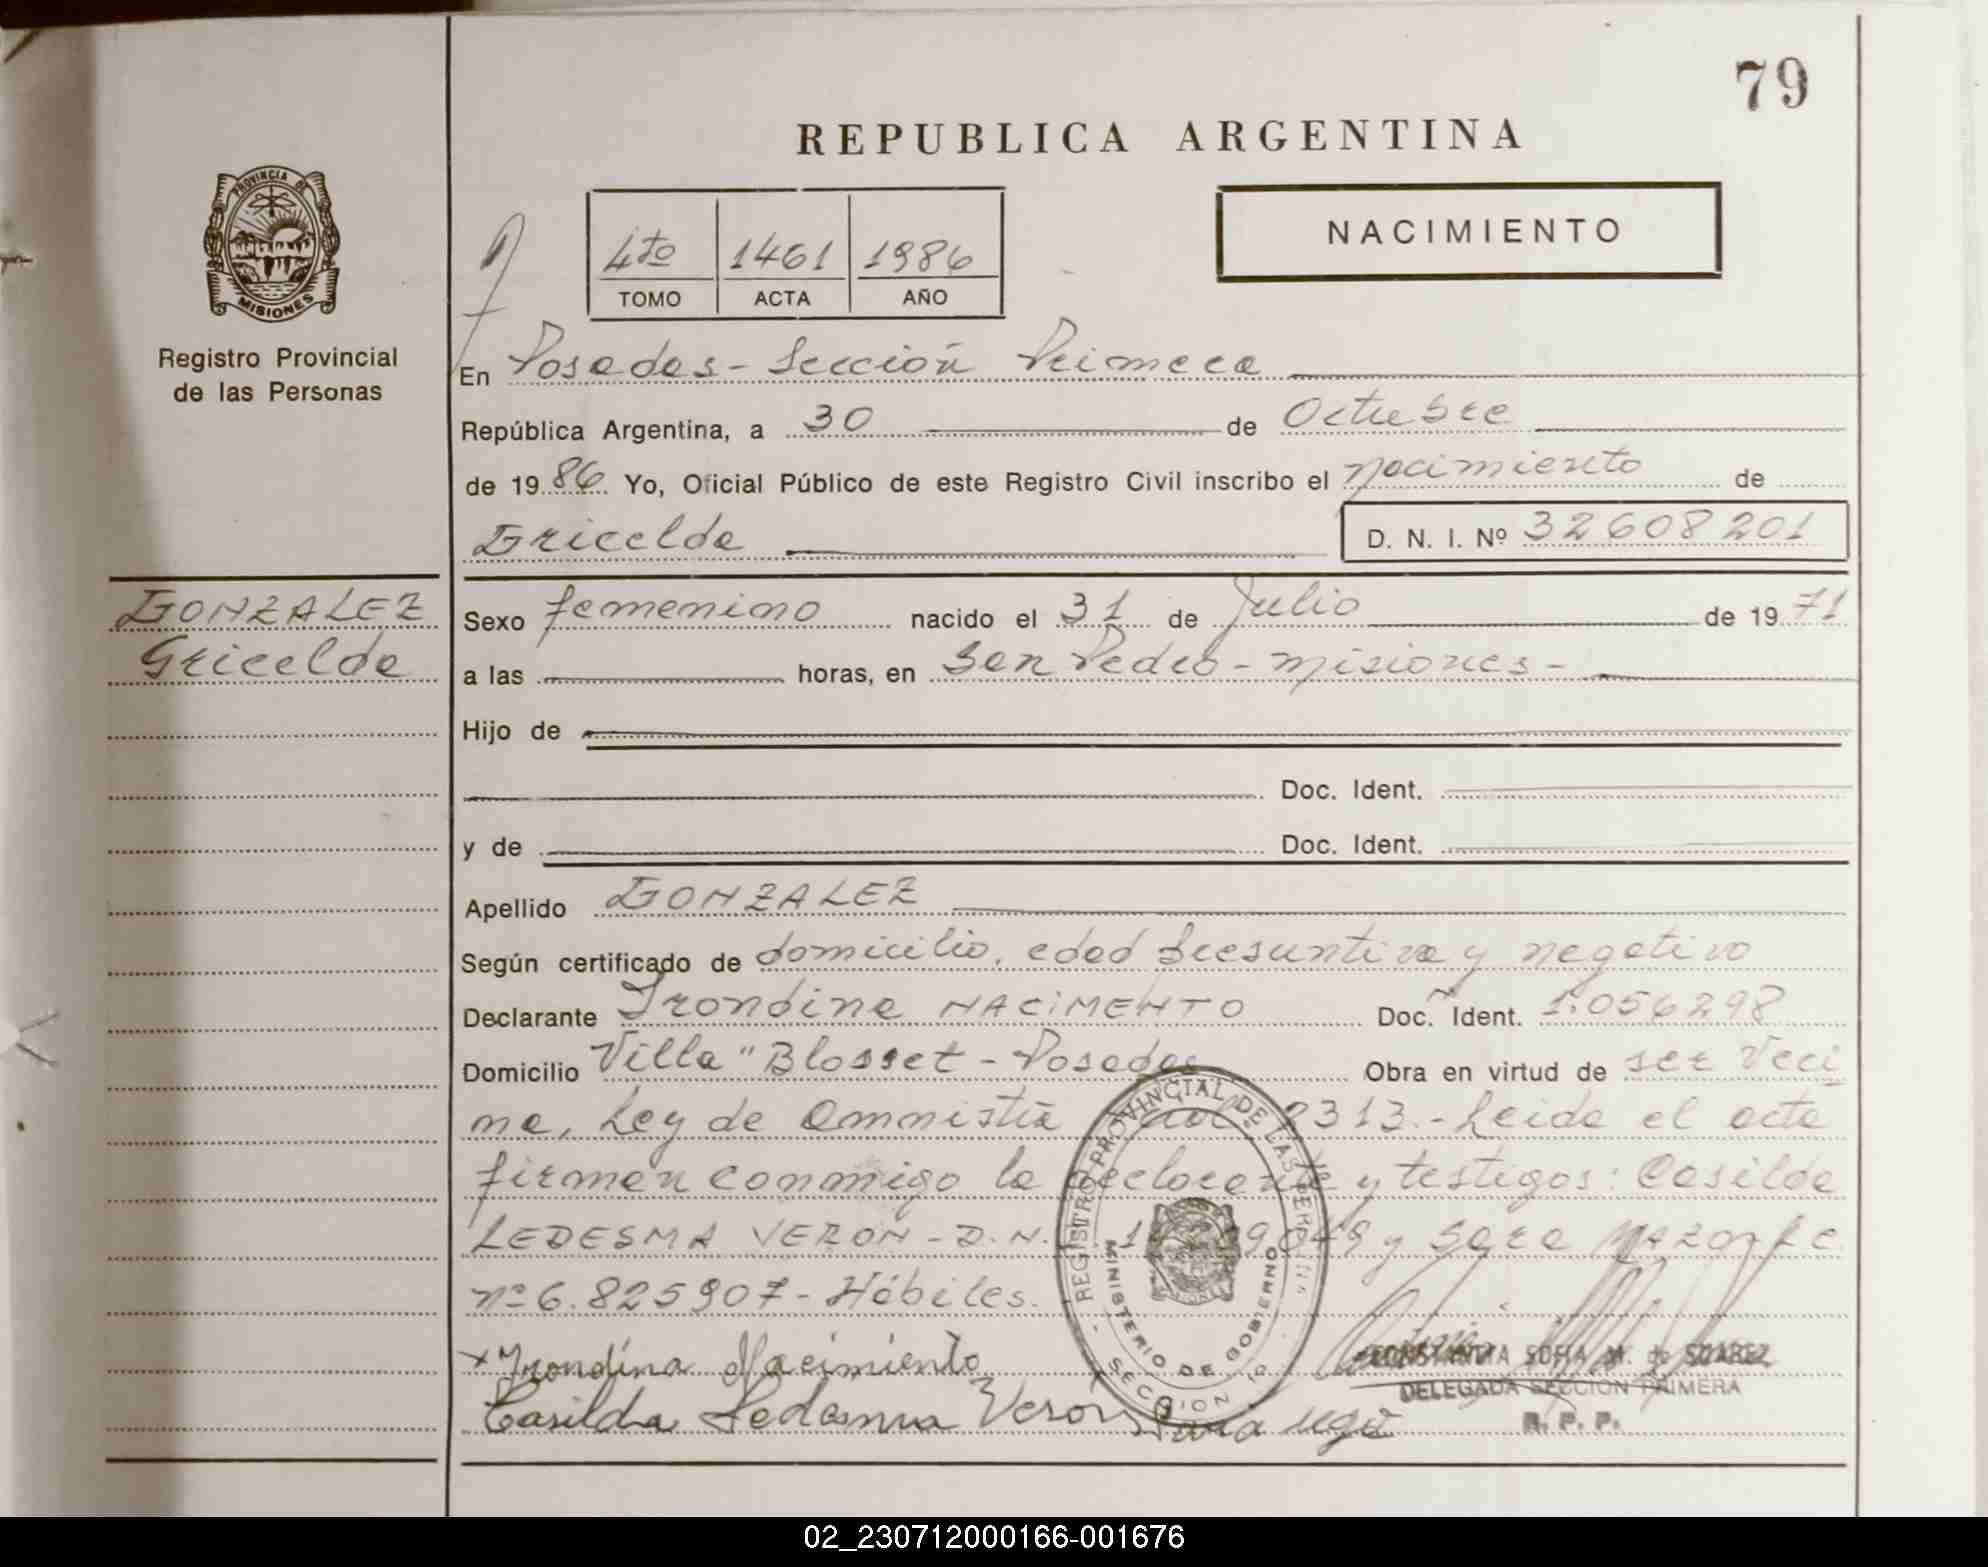 79
REPUBLICA ARGENTINA
PROVINCIA DE
MISIONES
Registro Provincial
de las Personas
4to 1461 1986
TOMO ACTA AÑO
NACIMIENTO
En Posadas - Sección Primera
República Argentina, a 30 de Octubre
de 1986 Yo, Oficial Público de este Registro Civil inscribo el nacimiento de
Gricelda D. N. I. Nº 32608201
GONZALEZ
Gricelda
Sexo femenino nacido el 31 de Julio de 1971
a las horas, en San Pedro - Misiones -
Hijo de
Doc. Ident.
y de Doc. Ident.
Apellido GONZALEZ
Según certificado de domicilio, edad presuntiva y negativo
Declarante Irondina NACIMENTO Doc. Ident. 1.056298
Domicilio Villa "Blosset - Posadas Obra en virtud de ser Veci
na, Ley de Amnistía 2313.- Leida el acta
firman conmigo la declarante y testigos: Casilda
LEDESMA VERON - D.N. y Sara MAZO L.C.
nº 6.825907 - Hábiles.
Irondina Nacimiento
Casilda Ledesma Verón
REGISTRO PROVINCIAL DE LAS PERSONAS
MINISTERIO DE GOBIERNO
SECCION 1a.
CONSTANTIA SOFIA M. de SUAREZ
DELEGADA SECCION PRIMERA
R. P. P.
02_230712000166-001676